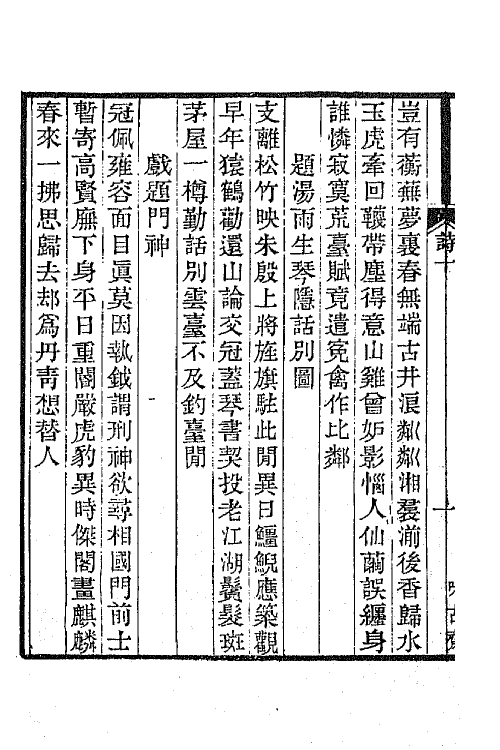 詩一
豈有蘅蕪夢裏春無端古井浪粼粼湘裠湔後香歸水
玉虎牽回韈帶塵得意山雞曾妒影惱人仙繭誤纏身
誰憐寂寞荒臺賦竟遣冤禽作比鄰
題湯雨生琴隱話別圖
支離松竹映朱殷上將旌旗駐此閒異日鱷鯢應築觀
早年猿鶴勸還山論交冠蓋琴書契投老江湖鬢髮斑
茅屋一樽勤話別雲臺不及釣臺閒
戲題門神
冠佩雍容面目眞莫因執鉞謂刑神欲尋相國門前士
暫寄高賢廡下身平日重閽嚴虎豹異時傑閣畫麒麟
春來一拂思歸去却爲丹靑想替人